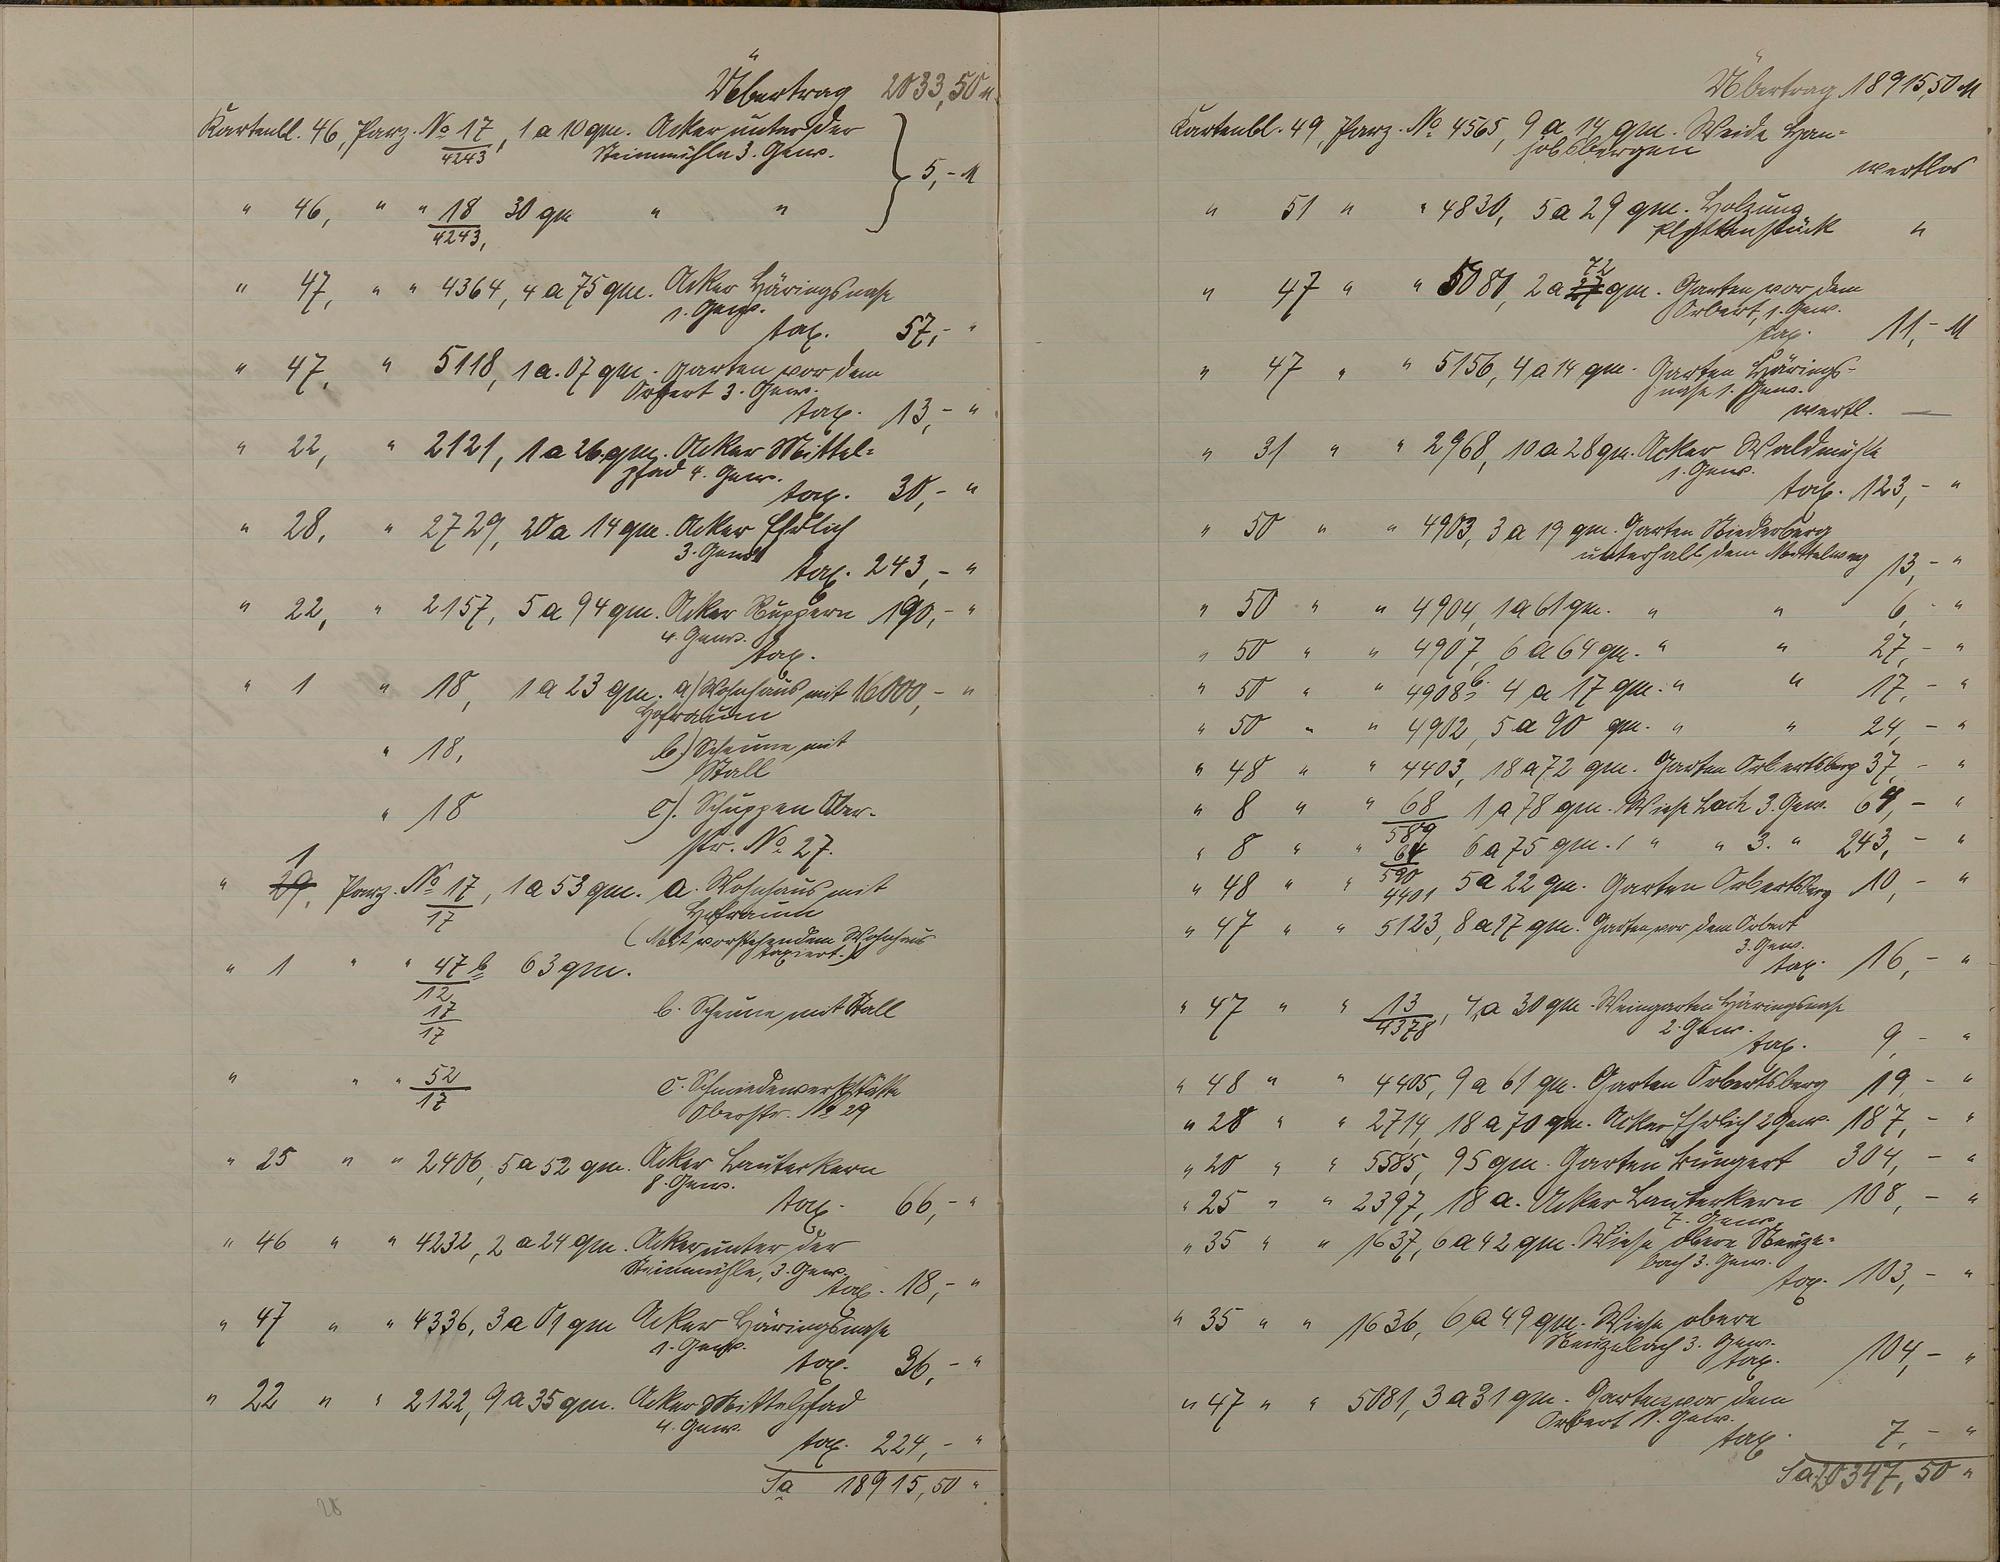 Übertrag 2033,50 M.
Kartenbl. 46, Parz. No 17/4243, 1 a 10 qm. Acker unter der
Steinmühle 3. Gew.
5,- M
" 46, " " 18/4243, 30 qm " "
" 47, " " 4364, 4 a 75 qm. Acker Häringsnase
1. Gew.
tax. 57,- "
" 47, " 5118, 1 a. 07 qm. Garten vor dem
Orbert 3. Gew.
tax. 13,- "
" 22, " 2121, 1 a 26 qm. Acker Mittel=
pfad 4. Gew.
tax. 30,- "
" 28, " 2729, 20 a 14 qm. Acker Ehrlich
3. Gew.
tax. 243,- "
" 22, " 2157, 5 a 94 qm. Acker Ruppern 190,- "
4. Gew.
tax.
" 1 " 18, 1 a 23 qm. a) Wohnhaus mit 16000,- "
Hofraum
" 18, b) Scheune mit
Stall
" 18 c). Schuppen Ober-
str. No 27.
1
" 29, Parz. No 17/17, 1 a 53 qm. a. Wohnhaus mit
Hofraum
(Mit vorstehendem Wohnhaus
taxiert.)
" 1 " " 47b/12 63 qm.
17/17 b. Scheune mit Stall
" " " 52/17 c. Schmiedewerkstätte
Oberstr. No 29
" 25 " " 2406, 5 a 52 qm. Acker Lauterkern
8. Gew.
tax. 66,- "
" 46 " " 4232, 2 a 24 qm. Acker unter der
Steinmühle, 3. Gew.
tax. 18,- "
" 47 " " 4336, 3 a 01 qm Acker Häringsnase
1. Gew.
tax. 36,- "
" 22 " " 2122, 9 a 35 qm. Acker Mittelpfad
4. Gew.
tax. 224,- "
Sa 18915,50 "
28
Übertrag 18915,50 M
Kartenbl. 49, Parz. No 4565, 9 a 14 qm. Weide Han=
jobsbergen
wertlos
" 51 " " 4830, 5 a 29 qm. Holzung
Plattenstück "
72
" 47 " " 5080, 2 a 27 qm. Garten vor dem
Orbert, 1. Gew.
tax. 11,- M
" 47 " " 5156, 4 a 14 qm. Garten Härings-
nase 1. Gew.
wertl. —
" 31 " " 2968, 10 a 28 qm. Acker Waldmühle
1. Gew.
tax. 123,- "
" 50 " " 4903, 3 a 19 qm. Garten Niederberg
unterhalb dem Mittelweg 13,- "
" 50 " " 4904, 1 a 61 qm. " " 6,- "
" 50 " " 4907, 6 a 64 qm. " " 27,- "
" 50 " " 4908b, 4 a 17 qm. " " 17,- "
" 50 " " 4902, 5 a 90 qm. " " 24,- "
" 48 " " 4403, 18 a 72 qm. Garten Orbertsberg 37,- "
" 8 " " 68/589 1 a 78 qm. Wiese Lach 3. Gew. 64,- "
" 8 " " 64/590 6 a 75 qm. " " 3. " 243,- "
" 48 " " 4401 5 a 22 qm. Garten Orbertsberg 10,- "
" 47 " " 5123, 8 a 17 qm. Garten vor dem Orbert
3. Gew.
tax. 16,- "
" 47 " " 13/4378, 4 a 30 qm. Weingarten Häringsnase
2. Gew.
tax. 9,- "
" 48 " " 4405, 9 a 61 qm. Garten Orbertsberg 19,- "
" 28 " " 2714, 18 a 70 qm. Acker Ehrlich 2 Gew. 187,- "
" 20 " " 5585, 95 qm. Garten Bungert 304,- "
" 25 " " 2397, 18 a. Acker Lauterkern 108,- "
7. Gew.
" 35 " " 1637, 6 a 42 qm. Wiese obere Neuze=
bach 3. Gew.
tax. 103,- "
" 35 " " 1636, 6 a 49 qm. Wiese obere
Neuzebach 3. Gew.
tax. 104,- "
" 47 " " 5081, 3 a 31 qm. Garten vor dem
Orbert 1. Gew.
tax. 7,- "
Sa. 20347,50 "